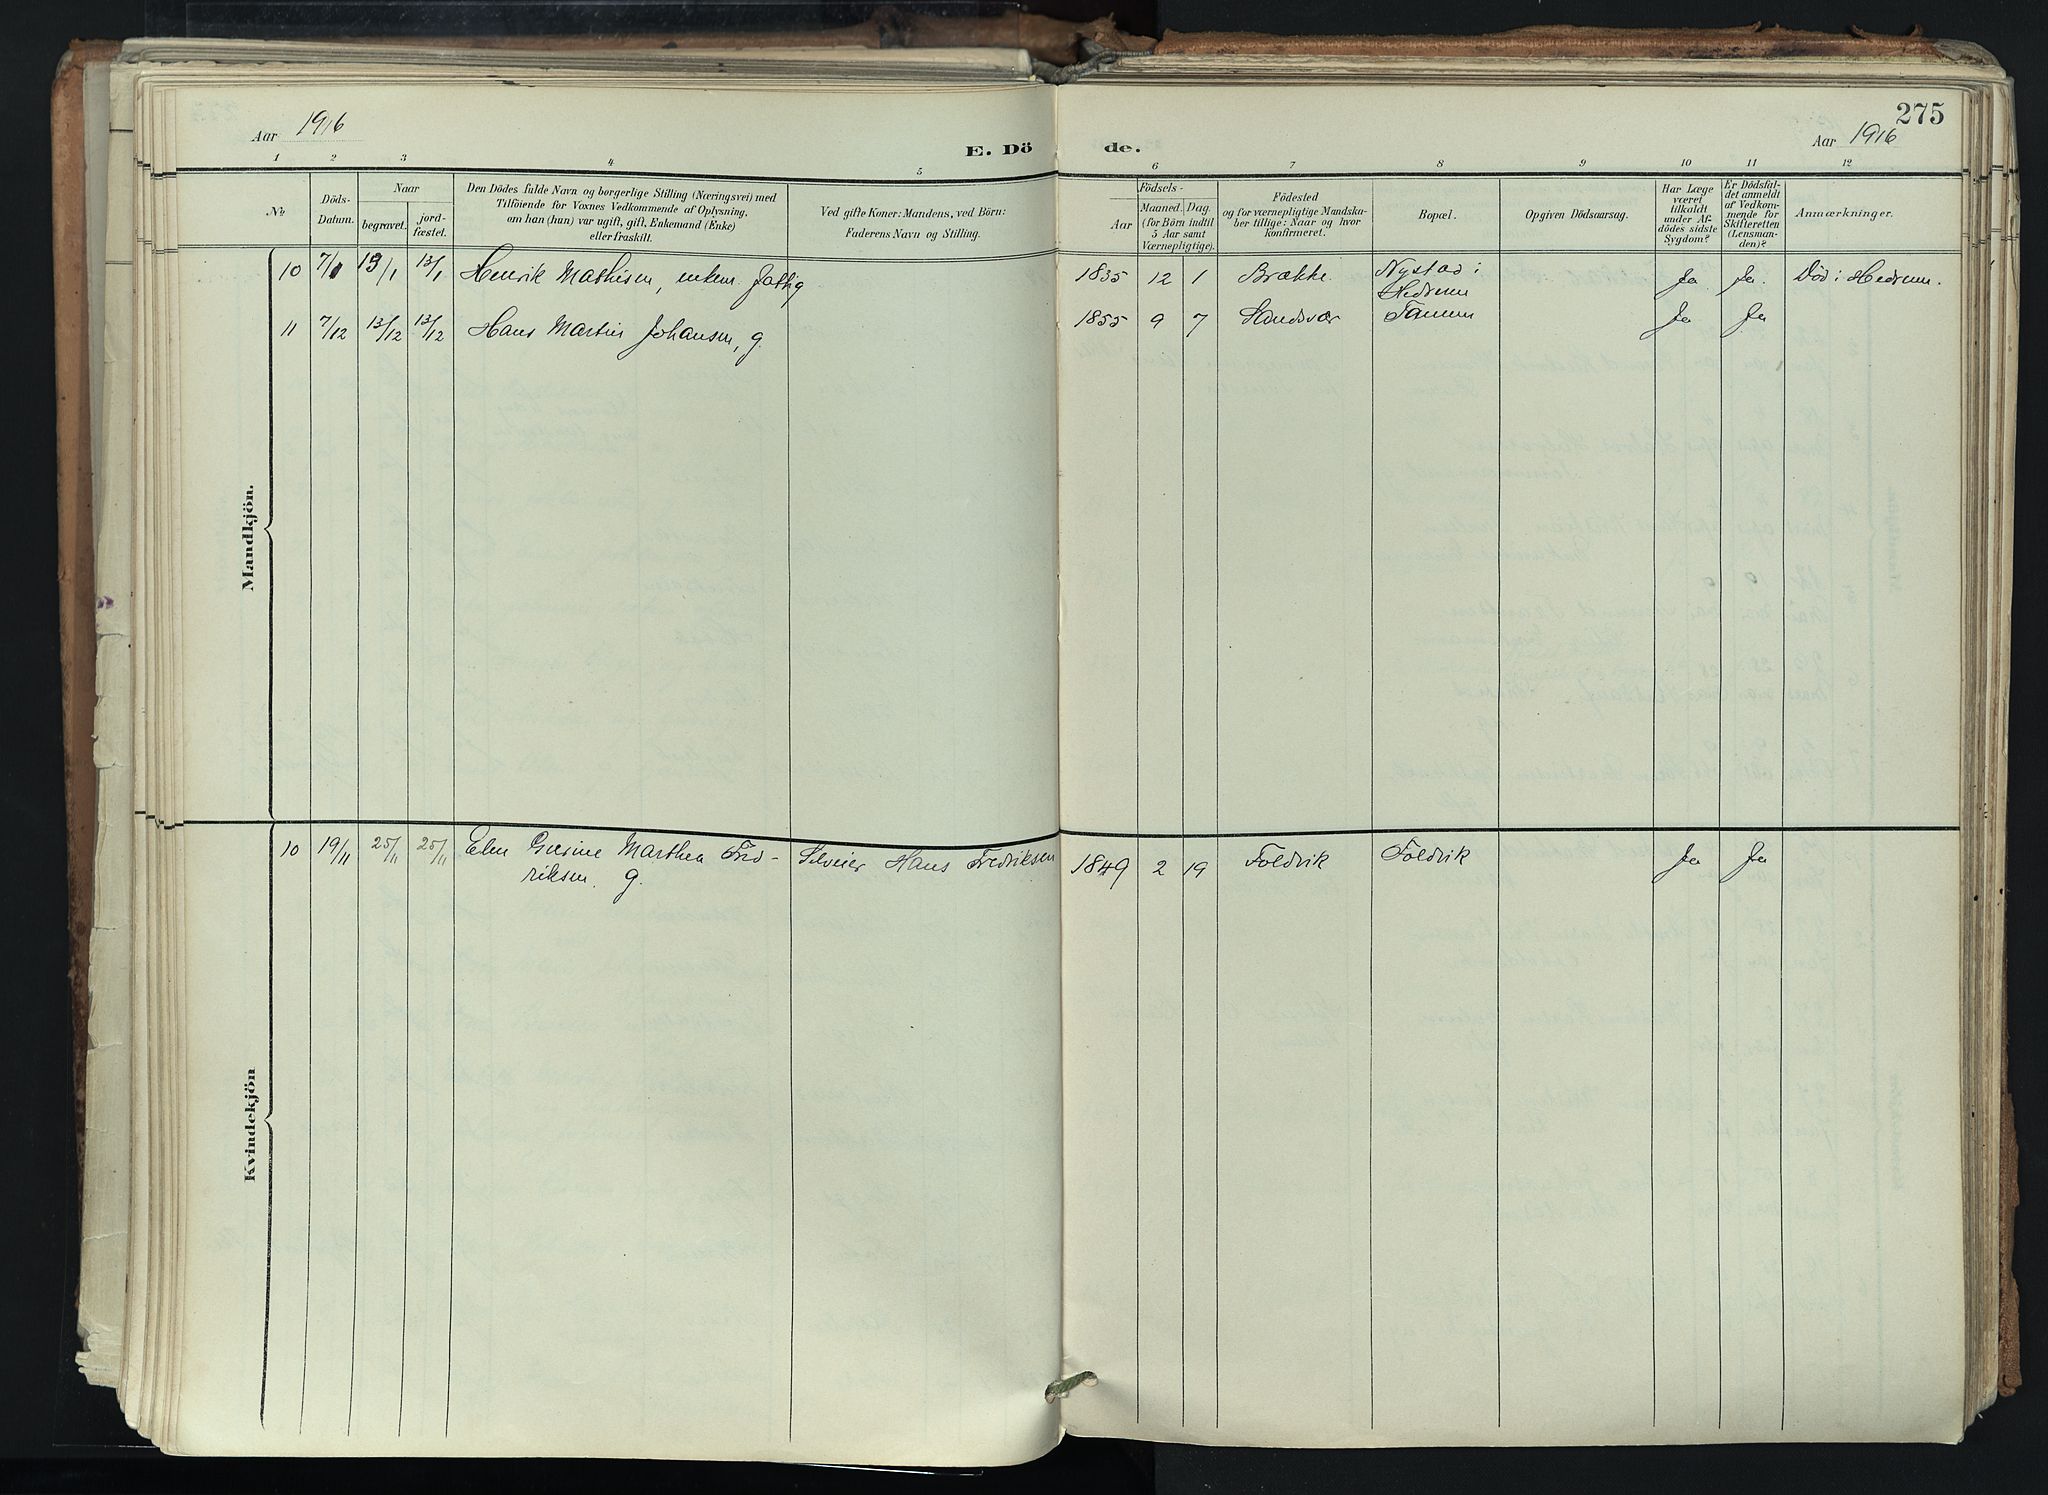 275
Aar 1916
E. Dö
de.
Aar 1916
1 2 3 4 5 6 7 8 9 10 11 12
№
Döds-
Datum.
Naar
begravet.
jord-
fæstet.
Den Dödes fulde Navn og borgerlige Stilling (Næringsvei) med
Tilföiende for Voxnes Vedkommende af Oplysning,
om han (hun) var ugift, gift, Enkemand (Enke)
eller fraskilt.
Ved gifte Koner: Mandens, ved Börn:
Faderens Navn og Stilling.
Födsels-
Aar
Maaned. Dag.
(for Börn indtil
5 Aar samt
Værnepligtige).
Födested
og for værnepligtige Mandska-
ber tillige: Naar og hvor
konfirmeret.
Bopæl.
Opgiven Dödsaarsag.
Har Læge
været
tilkaldt
under Af-
dödes sidste
Sygdom?
Er Dödsfal-
det anmeldt
af Vedkom-
mende for
Skifteretten
(Lensman-
den)?
Anmærkninger.
Mandkjön.
10 7/1 13/1 13/1 Henrik Mathisen, enkem. fattig 1835 12 1 Brække. Nystad i Ja Ja. Död i Hedrum.
Hedrum
11 7/12 13/12 13/12 Hans Martin Johansen, g. 1855 9 7 Sandsvær Tanum Ja Ja
Kvindekjön
10 19/11 25/11 25/11 Elen Marthea Fred- Selveier Hans Fredriksen 1849 2 19 Foldvik Foldvik Ja Ja
riksen. g.